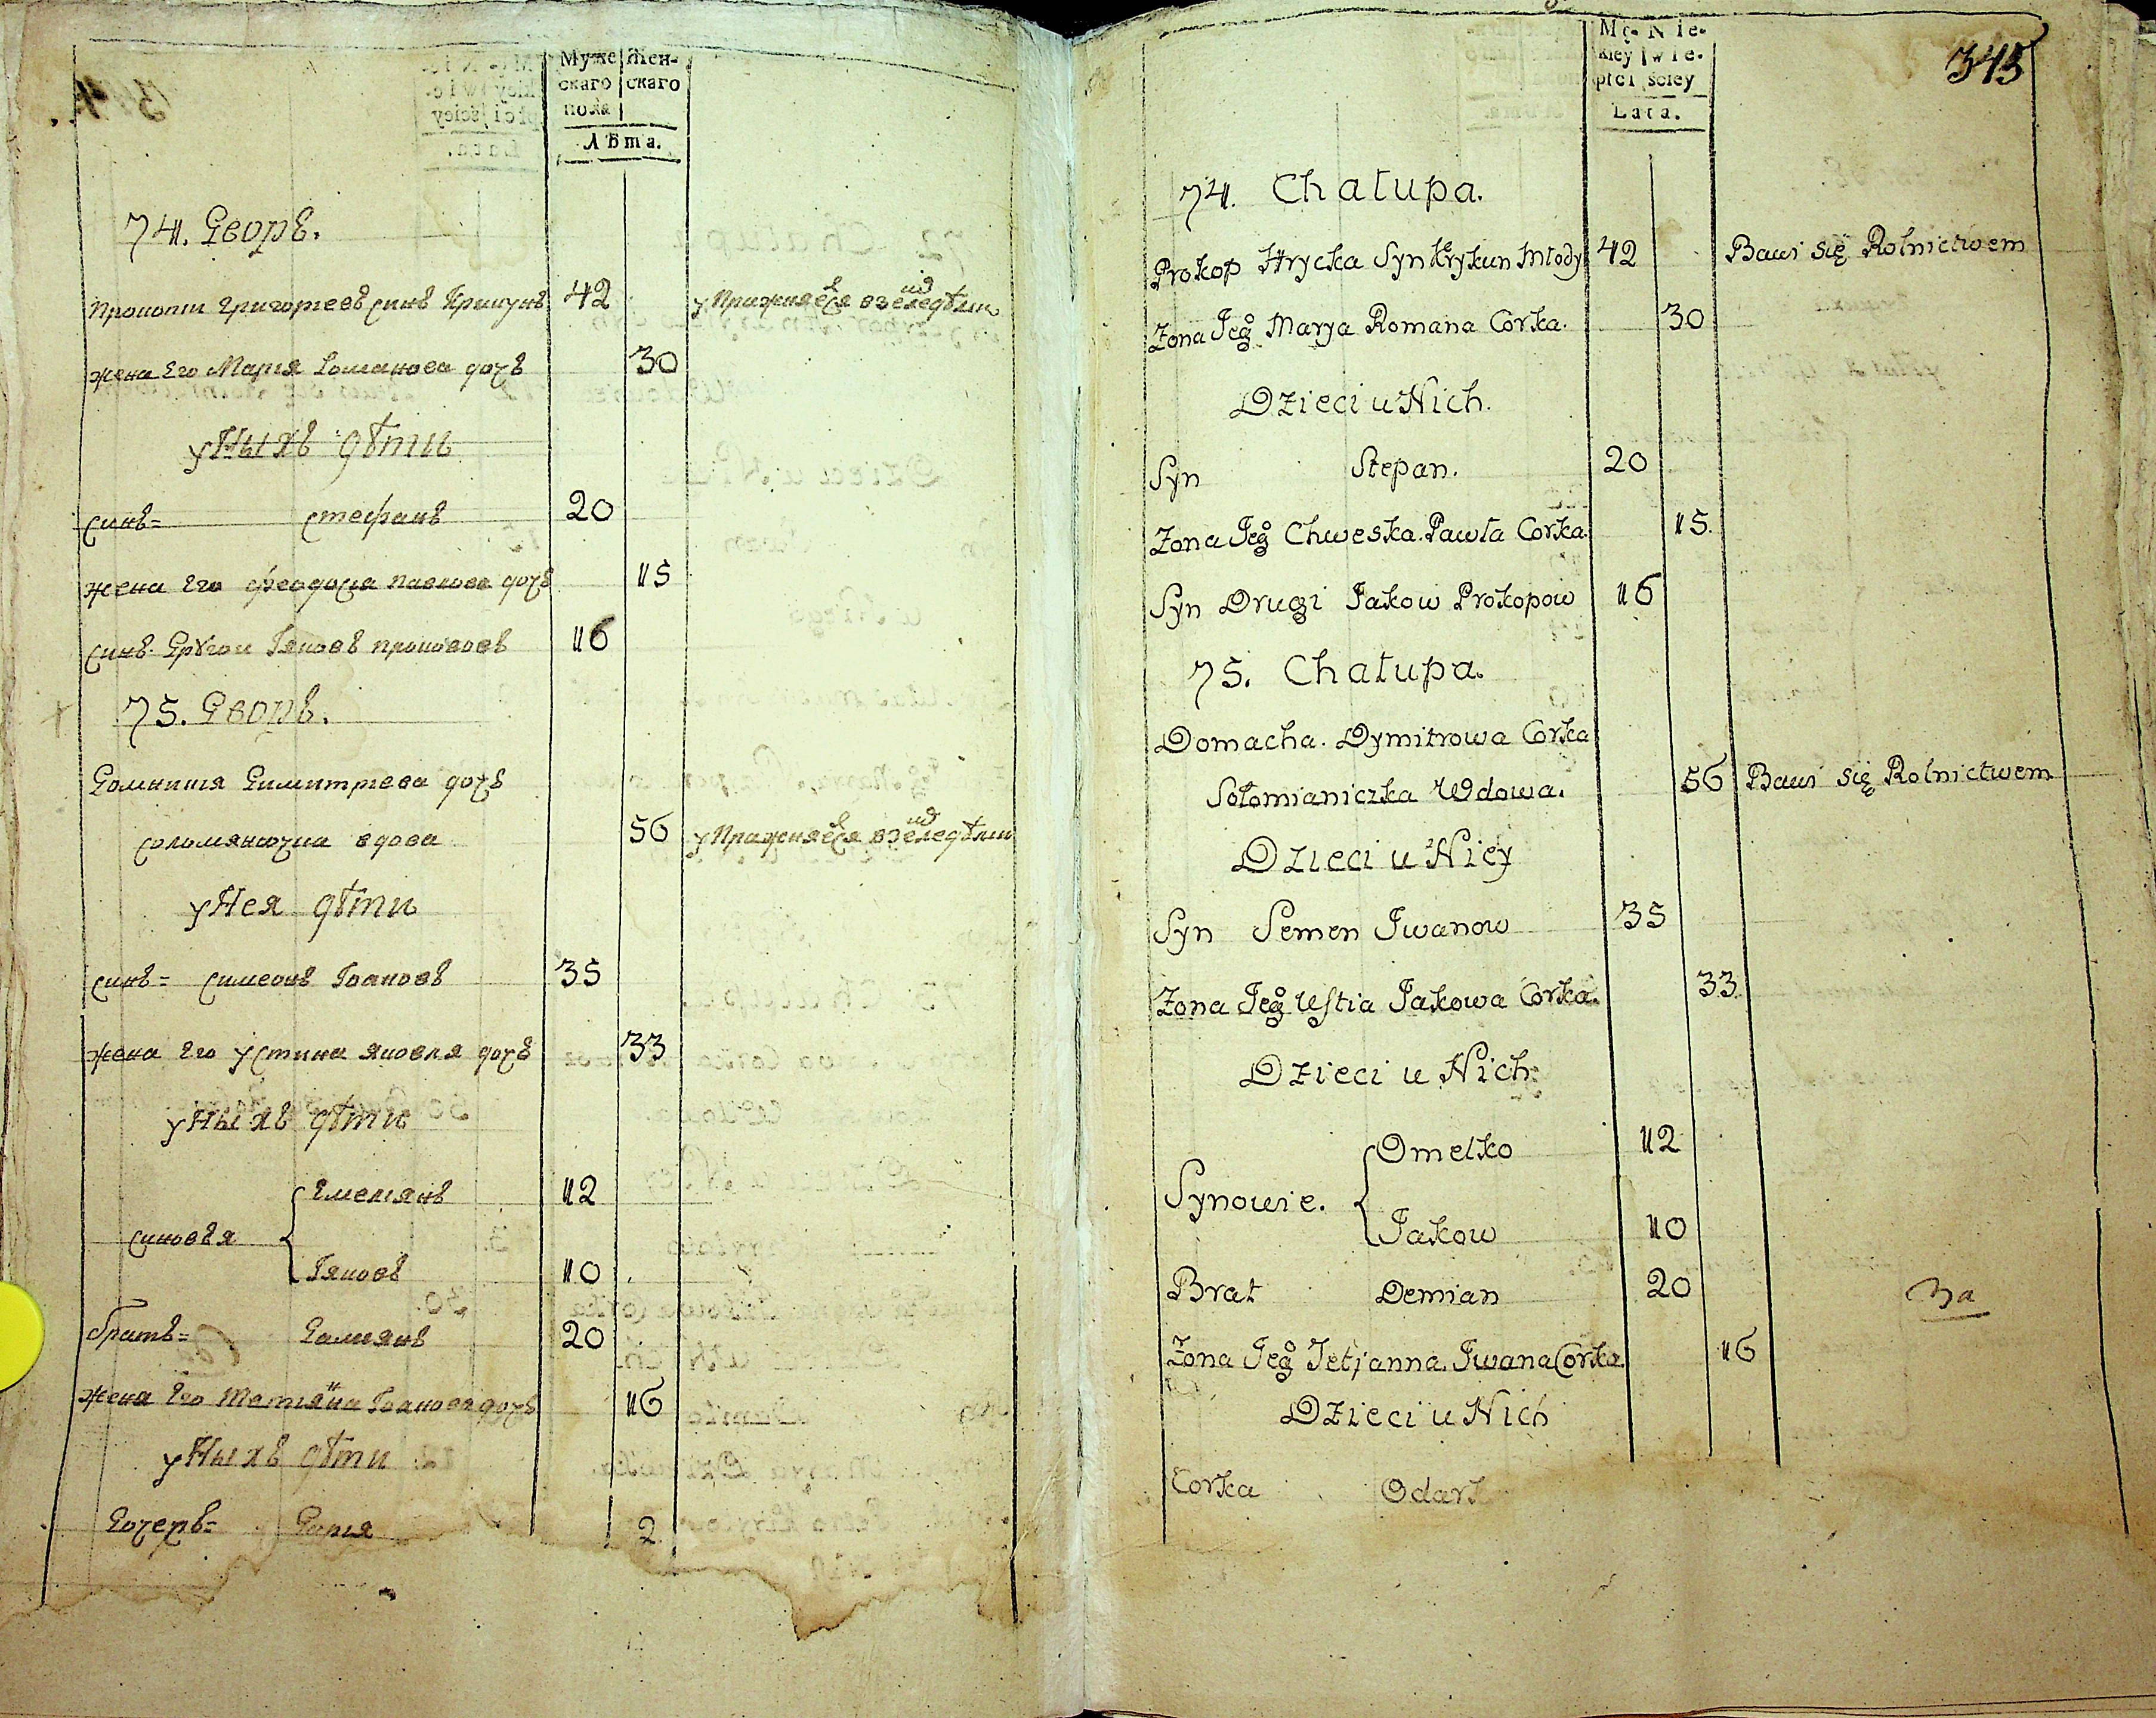 Муже Жен-
скаго скаго
пола
Лѣта.
74. Дворъ.
Прокопи Григориевъ синъ Крикунъ 42 упражняется в земледѣлии
жена Его Мария Романова дочъ 30
у Ныхъ дѣти
синъ= Стефанъ 20
жена Его Феодосия Павлова дочъ 15
синъ Другои Іяковъ Прокоповъ 16
75. Дворъ.
Домникия Димитриева дочъ
Соломянючка вдова 56 упражняется в земледѣлии
у Нея дѣти
синъ= Симеонъ Івановъ 35
жена Его Устина Яковля дочъ 33
у Ныхъ дѣти
синовья
Емелянъ 12
Іяковъ 10
братъ= Дамиянъ 20
жена Его Татияна Іванова дочъ 16
у Ныхъ дѣти
Дочеръ= Дария 2
Mę- Nie-
kiey wie-
płci sciey
Lata.
345
74. Chałupa.
Prokop Hrycka Syn Krykun Młody 42 Bawi się Rolnictwem
Zona Jego Marya Romana Corka. 30
Dzieci u Nich.
Syn Stepan. 20
Zona Jego Chweska. Pawła Corka. 15.
Syn Drugi Jakow Prokopow 16
75. Chałupa.
Domacha. Dymitrowa Corka
Sołomianiczka Wdowa. 56 Bawi się Rolnictwem
Dzieci u Niey
Syn Semen Jwanow 35
Zona Jego Ustia Jakowa Corka. 33
Dzieci u Nich
Synowie.
Omelko 12
Jakow 10
Brat Demian 20
Zona Jego Tetjanna Jwana Corka 16
Dzieci u Nich
Corka